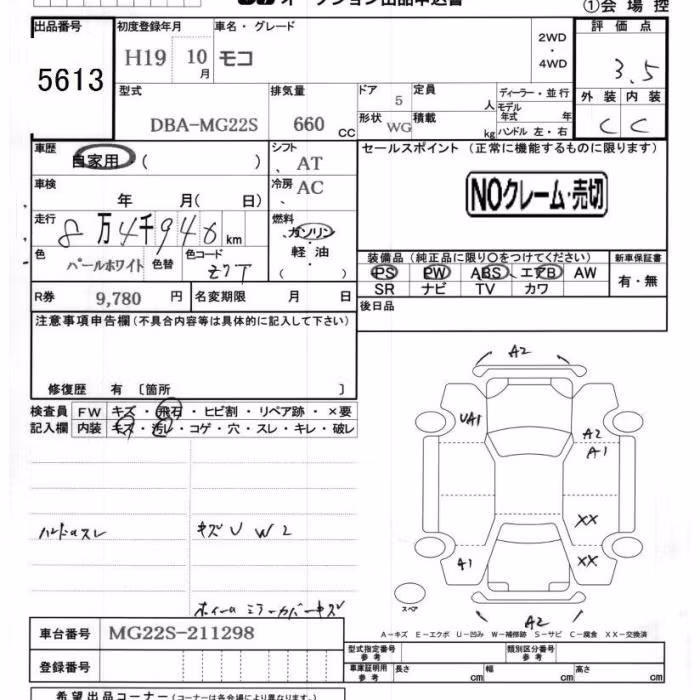 オークション出品申込書 ①会場控
出品番号 初度登録年月 車名・グレード 評価点
5613 H19 10月 モコ 2WD・4WD 3.5
型式 排気量 ドア 定員 ディーラー・並行 外装 内装
DBA-MG22S 660 CC 5 人 モデル年式 年 C C
形状 WG 積載 kg ハンドル 左・右
車歴 自家用 ( ) シフト AT セールスポイント (正常に機能するものに限ります)
車検 年 月( 日) 冷房 AC NOクレーム・売切
走行 8万4千946km 燃料 ガソリン・軽油 ( )
色 パールホワイト 色替 色コード Z7T
装備品 (純正品に限り○をつけてください) 新車保証書
PS PW ABS エアB AW 有・無
SR ナビ TV カワ
R券 9,780 円 名変期限 月 日 後日品
注意事項申告欄 (不具合内容等は具体的に記入して下さい)
修復歴 有 〔箇所 〕
検査員 FW キズ・飛石・ヒビ割・リペア跡・×要
記入欄 内装 キズ・汚レ・コゲ・穴・スレ・キレ・破レ
A2
UA1 A2
A1
XX
A1 XX
A2
スペア
ハンドルスレ キズUW2
ホイール ミラーカバーキズ
A-キズ E-エクボ U-凹み W-補修跡 S-サビ C-腐食 XX-交換済
車台番号 MG22S-211298
登録番号
型式指定番号 参考 類別区分番号 参考
車庫証明用 参考 長さ cm 幅 cm 高さ cm
希望出品コーナー (コーナーは各会場により異なります。)